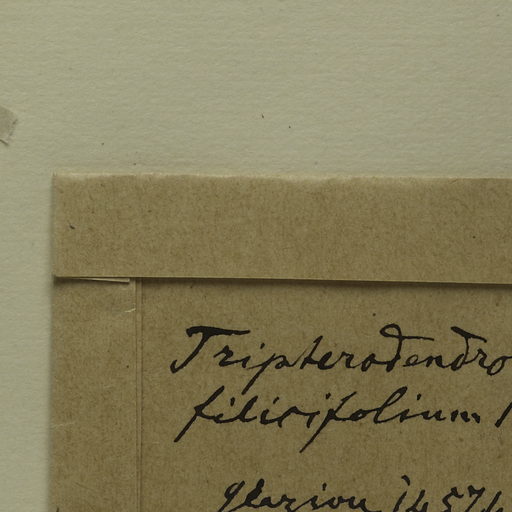 Tripterodendro
filicifolium
Glaziou 1457